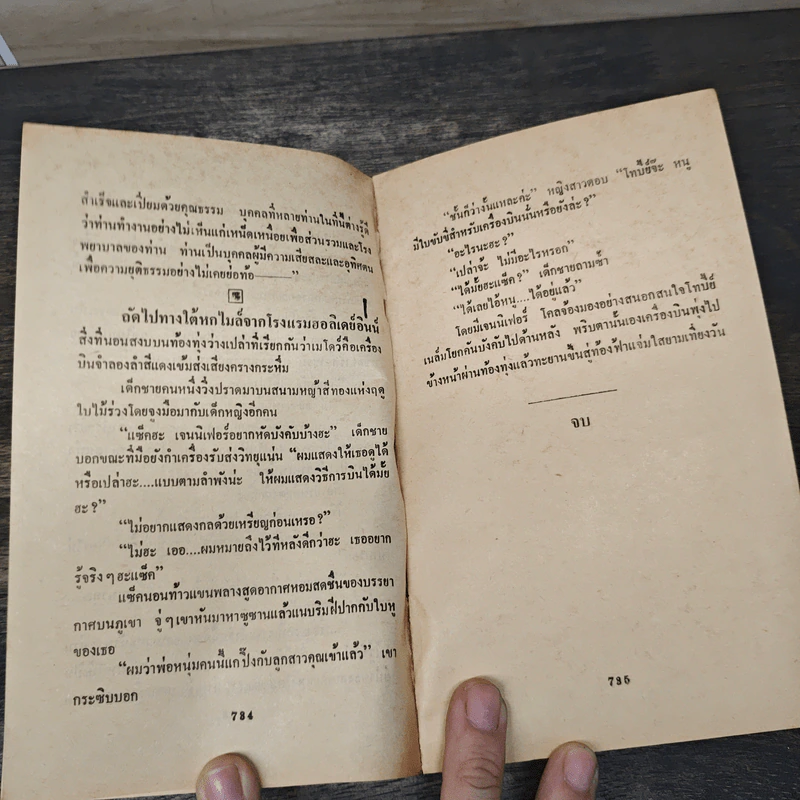 สำเร็จและเปี่ยมด้วยคุณธรรม บุคคลที่หลายท่านในที่นี้ต่างรู้ดี
ว่าท่านทำงานอย่างไม่เห็นแก่เหน็ดเหนื่อยเพื่อส่วนรวมและโรง
พยาบาลของท่าน ท่านเป็นบุคคลผู้มีความเสียสละและอุทิศตน
เพื่อความยุติธรรมอย่างไม่เคยย่อท้อ——”
ถัดไปทางใต้หกไมล์จากโรงแรมฮอลิเดย์อินน์
สิ่งที่นอนสงบบนท้องทุ่งว่างเปล่าที่เรียกกันว่าเมโดว์คือเครื่อง
บินจำลองลำสีแดงเข้มส่งเสียงครางกระหึ่ม
เด็กชายคนหนึ่งวิ่งปราดมาบนสนามหญ้าสีทองแห่งฤดู
ใบไม้ร่วงโดยจูงมือมากับเด็กหญิงอีกคน
“แซ็คฮะ เจนนิเฟอร์อยากหัดบังคับบ้างฮะ” เด็กชาย
บอกขณะที่มือยังกำเครื่องรับส่งวิทยุแน่น “ผมแสดงให้เธอดูได้
หรือเปล่าฮะ....แบบตามลำพังน่ะ ให้ผมแสดงวิธีการบินได้มั้ย
ฮะ?”
“ไม่อยากแสดงกลด้วยเหรียญก่อนเหรอ?”
“ไม่ฮะ เออ....ผมหมายถึงไว้ทีหลังดีกว่าฮะ เธออยาก
รู้จริงๆฮะแซ็ค”
แซ็คนอนท้าวแขนพลางสูดอากาศหอมสดชื่นของบรรยา
กาศบนภูเขา จู่ๆเขาหันมาหาซูซานแล้วแนบริมฝีปากกับใบหู
ของเธอ
“ผมว่าพ่อหนุ่มคนนี้แกปิ๊งกับลูกสาวคุณเข้าแล้ว” เขา
กระซิบบอก
734
“ชั้นก็ว่างั้นแหละค่ะ” หญิงสาวตอบ “โทบี้ย์จ๊ะ หนู
มีใบขับขี่สำหรับเครื่องบินนั้นหรือยังล่ะ?”
“อะไรนะฮะ?”
“เปล่าจ้ะ ไม่มีอะไรหรอก”
“ได้มั้ยฮะแซ็ค?” เด็กชายถามซ้ำ
“ได้เลยไอ้หนู....ได้อยู่แล้ว”
โดยมีเจนนิเฟอร์ โคลจ้องมองอย่างสนอกสนใจโทบี้ย์
เนล็มโยกคันบังคับไปด้านหลัง พริบตานั้นเองเครื่องบินพุ่งไป
ข้างหน้าผ่านท้องทุ่งแล้วทะยานขึ้นสู่ท้องฟ้าแจ่มใสยามเที่ยงวัน
จบ
735